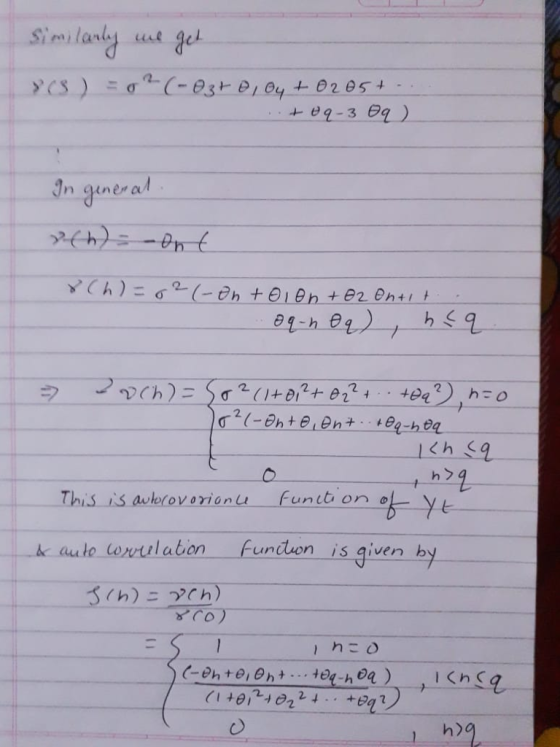 Similarly we get
γ(3) = σ²(-θ3 + θ1θ4 + θ2θ5 + ··
·· + θq-3 θq)
⋮
In general.
γ(h) = -θh (
γ(h) = σ²(-θh + θ1θh + θ2θh+1 + ··
θq-h θq) , h ≤ q
⇒ γ(h) = { σ²(1+θ1²+θ2²+ ·· +θq²), h=0
σ²(-θh+θ1θh+ ·· +θq-hθq
1<h ≤q
0 , h>q
This is autocovariance function of Yt
& auto correlation function is given by
ρ(h) = γ(h)
γ(0)
= { 1 , h=0
(-θh+θ1θh+ ··· +θq-hθq) , 1<h≤q
(1+θ1²+θ2²+ ·· +θq²)
0 , h>q